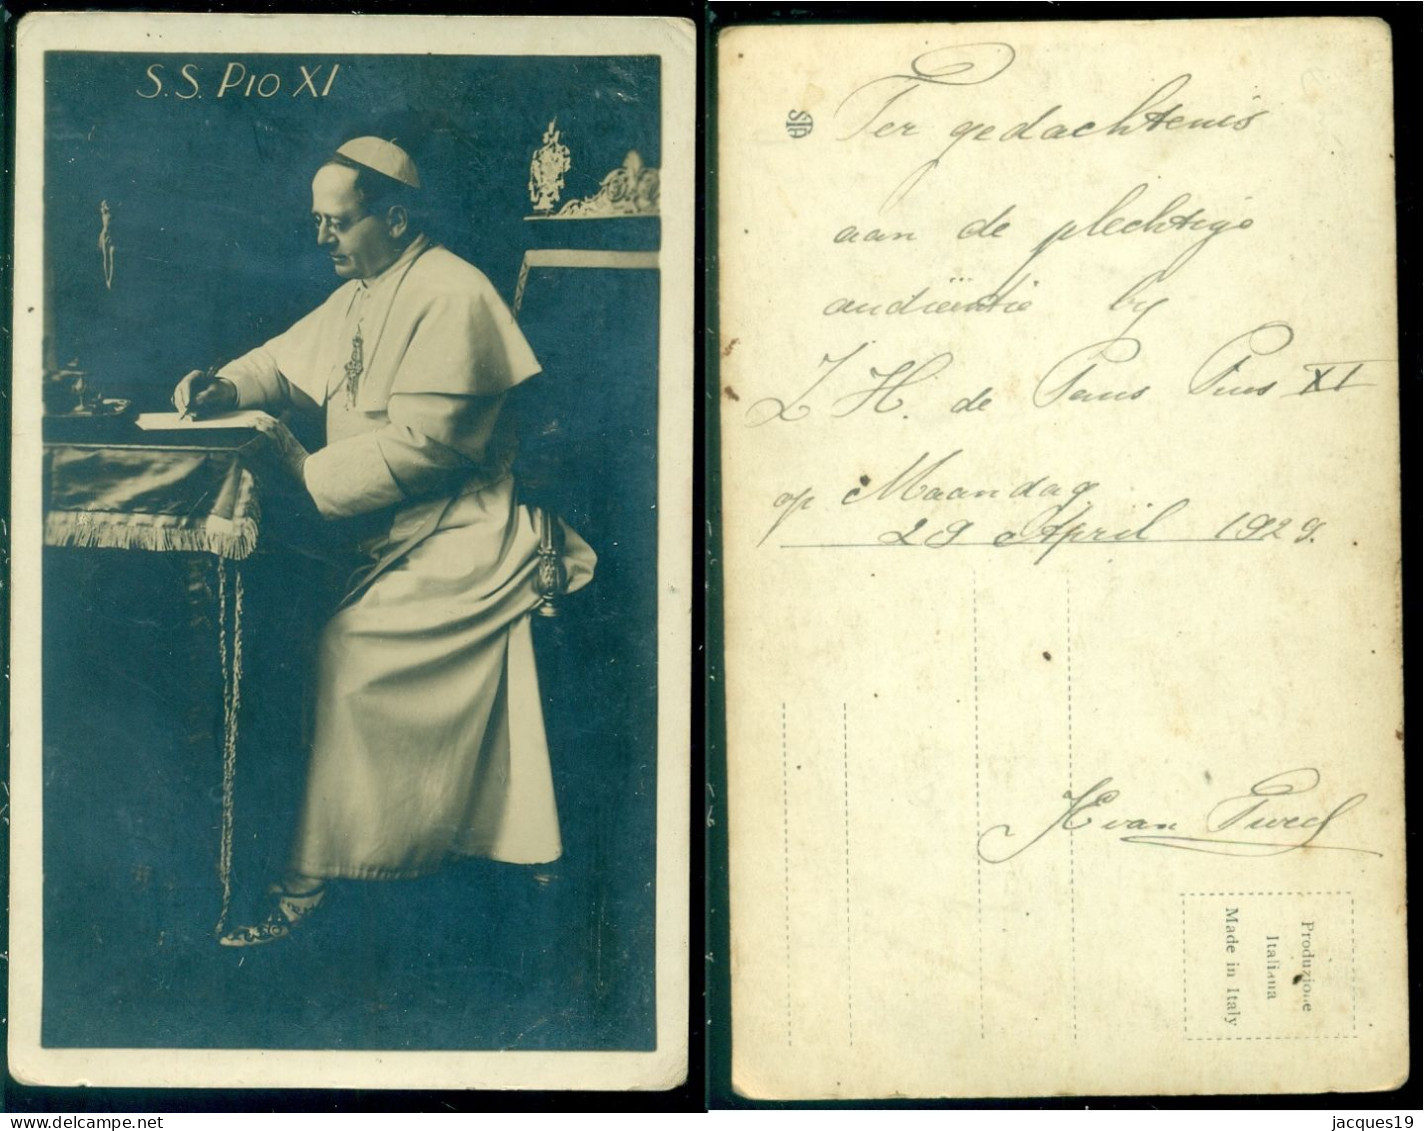 S.S. PIO XI
Ter gedachtenis
aan de plechtige
audiëntie by
Z H. de Paus Pius XI
op Maandag
29 April 1929.
H van
Produzione
Italiana
Made in Italy
jacques19